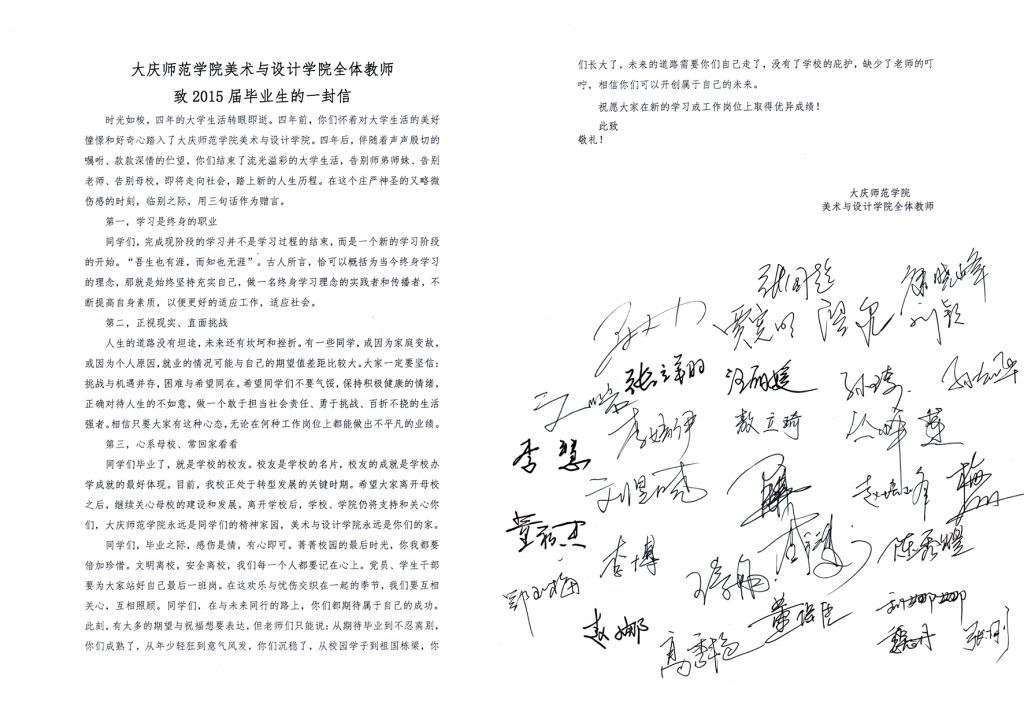 大庆师范学院美术与设计学院全体教师
致 2015 届毕业生的一封信
时光如梭，四年的大学生活转眼即逝。四年前，你们怀着对大学生活的美好
憧憬和好奇心踏入了大庆师范学院美术与设计学院。四年后，伴随着声声殷切的
嘱咐、款款深情的伫望，你们结束了流光溢彩的大学生活，告别师弟师妹、告别
老师、告别母校，即将走向社会，踏上新的人生历程。在这个庄严神圣的又略微
伤感的时刻，临别之际，用三句话作为赠言。
第一，学习是终身的职业
同学们，完成现阶段的学习并不是学习过程的结束，而是一个新的学习阶段
的开始。“吾生也有涯，而知也无涯”。古人所言，恰可以概括为当今终身学习
的理念，那就是始终坚持充实自己，做一名终身学习理念的实践者和传播者，不
断提高自身素质，以便更好的适应工作，适应社会。
第二，正视现实、直面挑战
人生的道路没有坦途，未来还有坎坷和挫折。有一些同学，或因为家庭变故，
或因为个人原因，就业的情况可能与自己的期望值差距比较大。大家一定要坚信：
挑战与机遇并存，困难与希望同在。希望同学们不要气馁，保持积极健康的情绪，
正确对待人生的不如意，做一个敢于担当社会责任、勇于挑战、百折不挠的生活
强者。相信只要大家有这种心态，无论在何种工作岗位上都能做出不平凡的业绩。
第三，心系母校、常回家看看
同学们毕业了，就是学校的校友。校友是学校的名片，校友的成就是学校办
学成就的最好体现。目前，我校正处于转型发展的关键时期。希望大家离开母校
之后，继续关心母校的建设和发展。离开学校后，学校、学院仍将支持和关心你
们，大庆师范学院永远是同学们的精神家园，美术与设计学院永远是你们的家。
同学们，毕业之际，感伤是情，有心即可。菁菁校园的最后时光，你我都要
倍加珍惜。文明离校，安全离校，我们每一个人都要记在心上。党员、学生干部
要为大家站好自己最后一班岗。在这欢乐与忧伤交织在一起的季节，我们要互相
关心，互相照顾。同学们，在与未来同行的路上，你们都期待属于自己的成功。
此刻，有太多的期望与祝福想要表达，但老师们只能说：从期待毕业到不忍离别，
你们成熟了，从年少轻狂到意气风发，你们沉稳了，从校园学子到祖国栋梁，你
们长大了，未来的道路需要你们自己走了，没有了学校的庇护，缺少了老师的叮
咛，相信你们可以开创属于自己的未来。
祝愿大家在新的学习或工作岗位上取得优异成绩！
此致
敬礼！
大庆师范学院
美术与设计学院全体教师
刘颖
李慧
敖立琦
李博
赵娜
刘娜娜
张刚